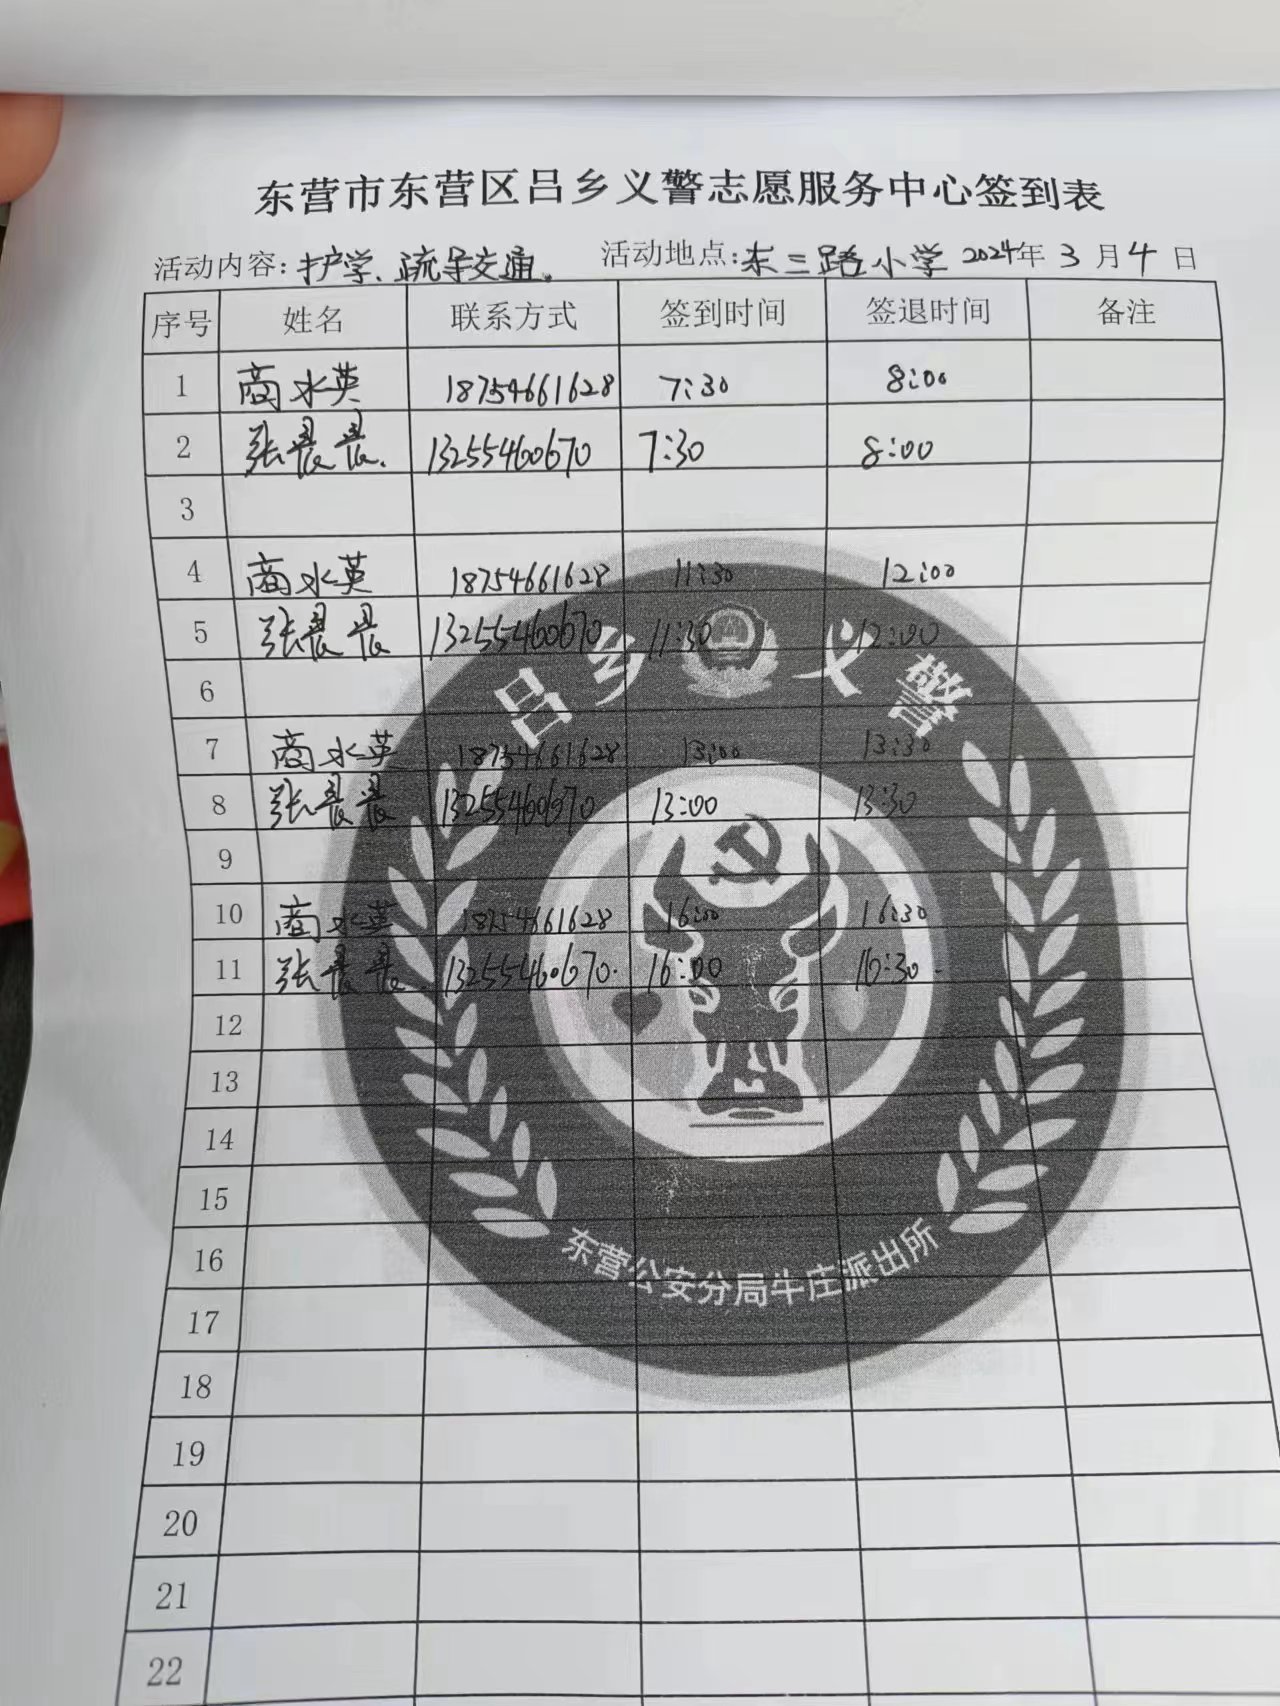 东营市东营区吕乡义警志愿服务中心签到表
活动内容：护学、疏导交通。 活动地点：东三路小学 2024年3月4日
序号 姓名 联系方式 签到时间 签退时间 备注
1 商水英 18754661628 7:30 8:00
2 张晨晨. 13255460670 7:30 8:00
3
4 商水英 18754661628 11:30 12:00
5 张晨晨 13255460670 11:30 12:00
6
7 商水英 18754661628 13:00 13:30
8 张晨晨 13255460670 13:00 13:30
9
10 商水英 18754661628 16:00 16:30
11 张晨晨. 13255460670. 16:00 16:30.
12
13
14
15
16
17
18
19
20
21
22
吕乡义警
东营公安分局牛庄派出所